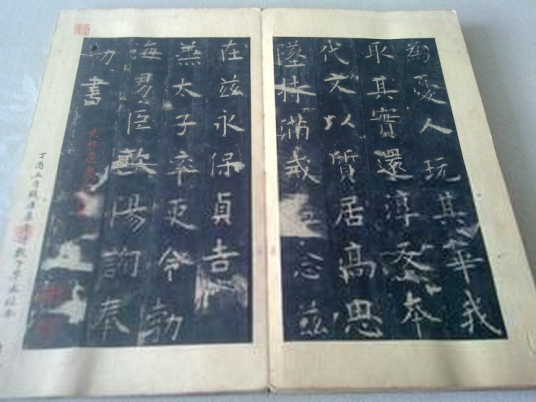 為憂人玩其華我
取其實還淳反夲
代文以質居高思
墜持滿戒溢念茲
在茲永保貞吉
兼太子率更令勃
海男臣歐陽詢奉
勑書